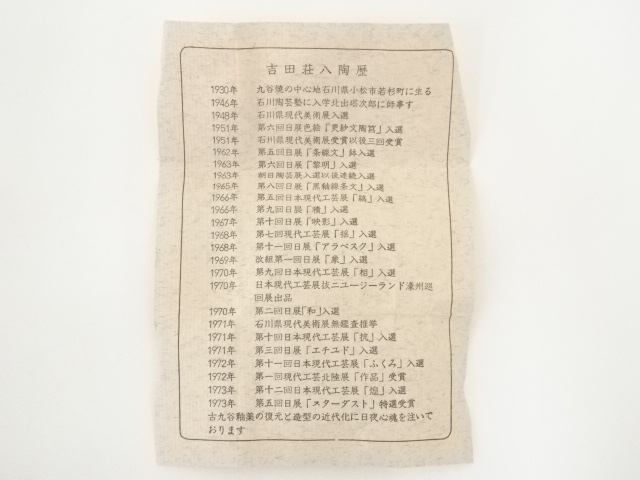 吉田荘八陶歴
1930年 九谷焼の中心地石川県小松市若杉町に生る
1946年 石川陶芸塾に入学北出塔次郎に師事す
1948年 石川県現代美術展入選
1951年 第六回日展色絵「更紗文陶筥」入選
1951年 石川県現代美術展受賞以後三回受賞
1962年 第五回日展「条線文」鉢入選
1963年 第六回日展「黎明」入選
1963年 朝日陶芸展入選以後連続入選
1965年 第八回日展「黒釉線条文」入選
1966年 第五回日本現代工芸展「縞」入選
1966年 第九回日展「積」入選
1967年 第十回日展「映影」入選
1968年 第七回現代工芸展「揺」入選
1968年 第十一回日展「アラベスク」入選
1969年 改組第一回日展「象」入選
1970年 第九回日本現代工芸展「相」入選
1970年 日本現代工芸展於ニュージーランド濠州巡
回展出品
1970年 第二回日展「和」入選
1971年 石川県現代美術展無鑑査推挙
1971年 第十回日本現代工芸展「抗」入選
1971年 第三回日展「エチユド」入選
1972年 第十一回日本現代工芸展「ふくみ」入選
1972年 第一回現代工芸北陸展「作品」受賞
1973年 第十二回日本現代工芸展「煌」入選
1973年 第五回日展「スターダスト」特選受賞
古九谷釉薬の復元と造型の近代化に日夜心魂を注いで
おります